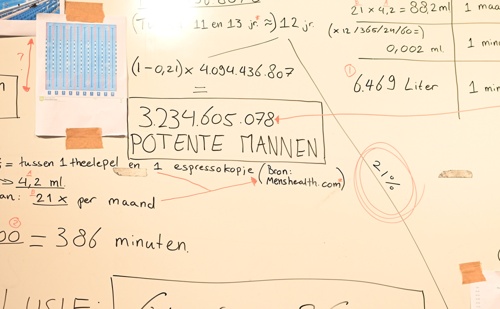 11 en 13 jr. ≈) 12 jr.
(1-0,21) x 4.094.436.807
=
3.234.605.078
POTENTE MANNEN
= tussen 1 theelepel en 1 espressokopje (Bron: Menshealth.com)
4,2 ml.
21 x per maand
= 386 minuten.
21 x 4,2 = 88,2 ml
(x 12/365/24/60=)
0,002 ml.
6.469 Liter
1 maa
1 min
1 min
21%
?